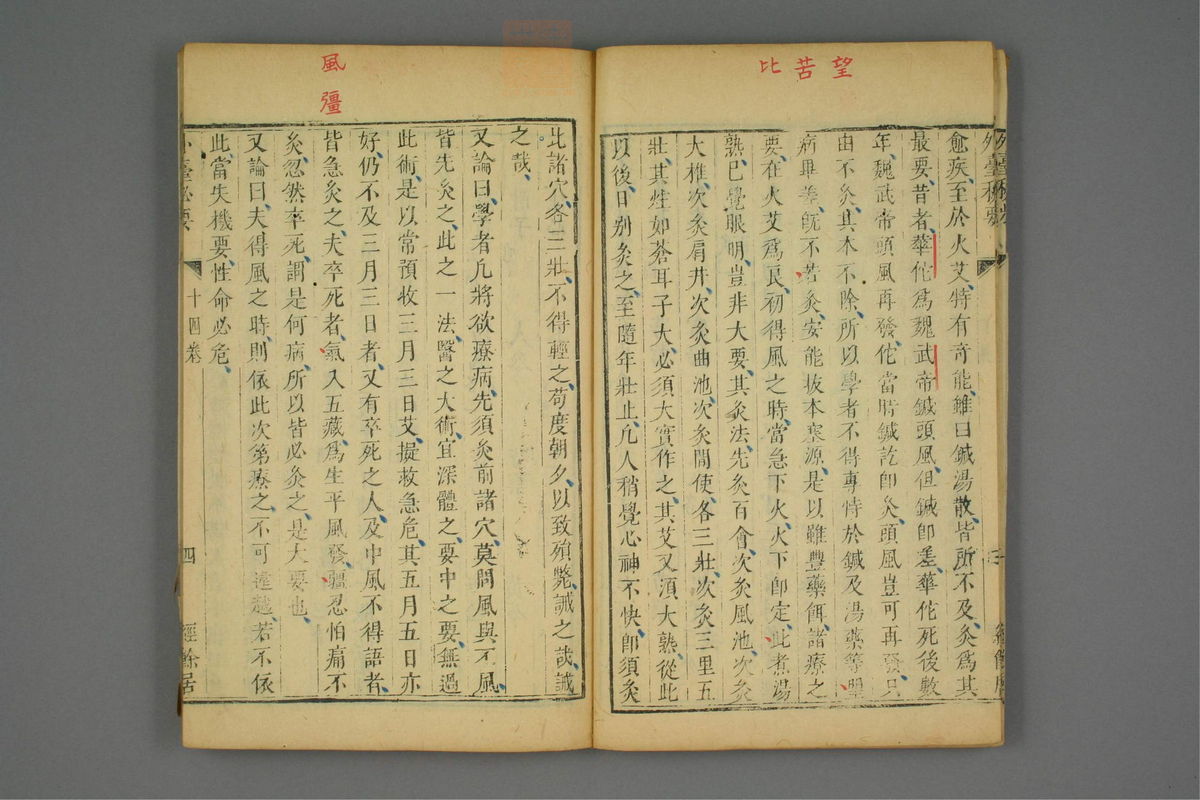 望
苦
比
外臺秘要
愈疾、至於火艾、特有奇能、雖曰鍼湯散皆所不及、灸爲其
最要、昔者、華佗爲魏武帝鍼頭風、但鍼卽差、華佗死後數
年、魏武帝頭風再發、佗當時鍼訖卽灸、頭風豈可再發、只
由不灸、其本不除、所以學者不得專恃於鍼及湯藥等、望
病畢差、旣不苦灸、安能拔本塞源、是以雖豐藥餌、諸療之
要、在火艾爲良、初得風之時、當急下火、火下卽定、此煮湯
熟、已覺眼明、豈非大要、其灸法、先灸百會、次灸風池、次灸
大椎、次灸肩井、次灸曲池、次灸間使、各三壯、次灸三里五
壯、其炷如蒼耳子大、必須大實作之、其艾又須大熟、從此
以後、日別灸之、至隨年壯止、凡人稍覺心神不快、卽須灸
風
彊
此諸穴、各三壯、不得輕之、苟度朝夕、以致殞斃、誡之哉、誡
之哉、
又論曰、學者凡將欲療病、先須灸前諸穴、莫問風與不風、
皆先灸之、此之一法、醫之大術、宜深體之、要中之要、無過
此術、是以常預收三月三日艾、擬救急危、其五月五日亦
好、仍不及三月三日者、又有卒死之人、及中風不得語者、
皆急灸之、夫卒死者、氣入五藏、爲生平風發、彊忍怕痛不
灸、忽然卒死、謂是何病、所以皆必灸之、是大要也、
又論曰、夫得風之時、則依此次第療之、不可違越、若不依
此、當失機要、性命必危、
外臺秘要
十四卷
四
經餘居